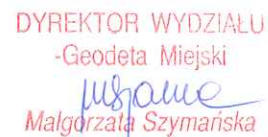 DYREKTOR WYDZIAŁU
-Geodeta Miejski
Małgorzata Szymańska